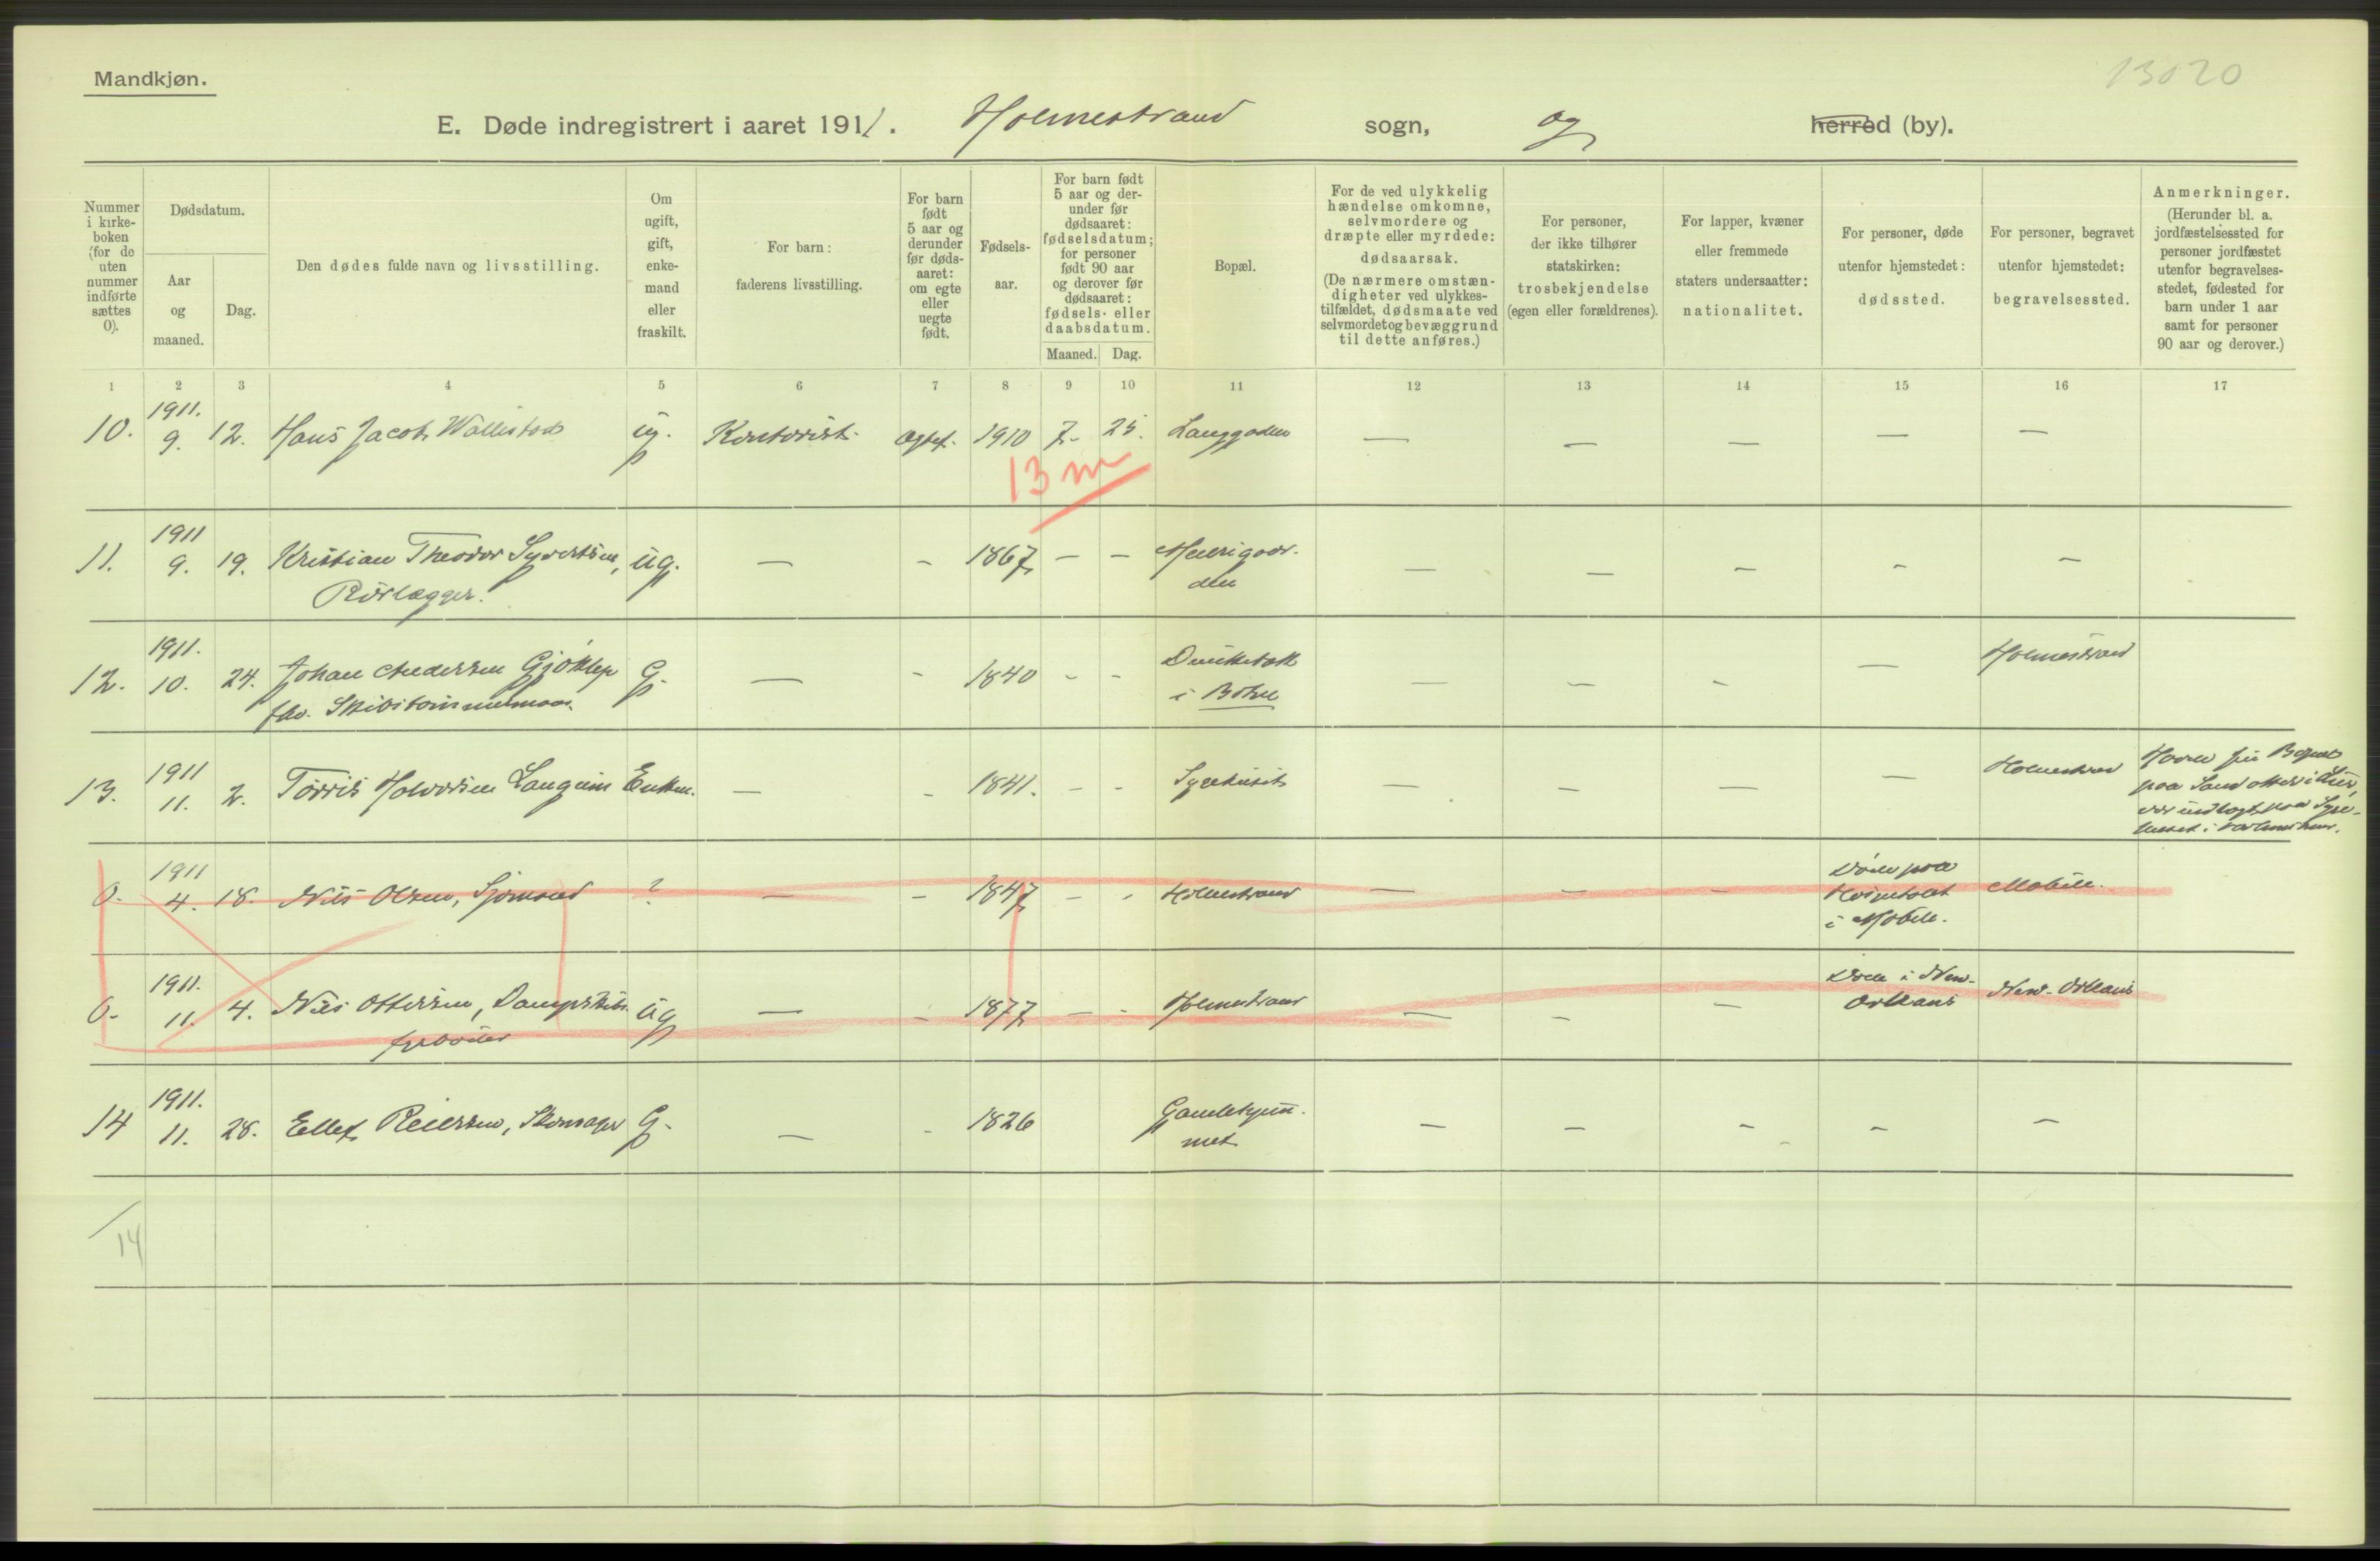 Mandkjøn.
13020
E. Døde indregistrert i aaret 1911. Holmestrand sogn, og herred (by).
Nummer i kirke-boken (for de uten nummer indførte sættes 0).
Dødsdatum.
Aar og maaned.
Dag.
Den dødes fulde navn og livsstilling.
Om ugift, gift, enke-mand eller fraskilt.
For barn: faderens livsstilling.
For barn født 5 aar og derunder før døds-aaret: om egte eller uegte født.
Fødsels-aar.
For barn født 5 aar og der-under før dødsaaret: fødselsdatum; for personer født 90 aar og derover før dødsaaret: fødsels- eller daabsdatum.
Maaned. Dag.
Bopæl.
For de ved ulykkelig hændelse omkomne, selvmordere og dræpte eller myrdede: dødsaarsak. (De nærmere omstæn-digheter ved ulykkes-tilfældet, dødsmaate ved selvmord et og bevæggrund til dette anføres.)
For personer, der ikke tilhører statskirken: trosbekjendelse (egen eller forældrenes).
For lapper, kvæner eller fremmede staters undersaatter: nationalitet.
For personer, døde utenfor hjemstedet: dødssted.
For personer, begravet utenfor hjemstedet: begravelsessted.
Anmerkninger. (Herunder bl. a. jordfæstelsessted for personer jordfæstet utenfor begravelses-stedet, fødested for barn under 1 aar samt for personer 90 aar og derover.)
1 2 3 4 5 6 7 8 9 10 11 12 13 14 15 16 17
10. 1911. 9. 12. Hans Jacob ug. Kontorist. Egtef. 1910 7. 25. Langgaden — — — — —
13 m
11. 1911 9. 19. Kristian Theodor Syvertsen, ug. — - 1867 - - — — - - -
Rörlægger.
12. 1911. 10. 24. Johan Andersen Gjöklep G. — - 1840 - - — — - — Holmestrand
fhv. Skibstömmermand. i Botne
13. 1911 11. 2. Torris Halvorsen Enkem. — - 1841. - - Sygehuset — — — — Holmestrand
0. 1911 4. 18. Nils Olsen, Sjömand ? — - 1847 - - Holmestrand — — — Döde paa Hospitalet i Mobile. Mobile.
0. 1911. 11. 4. Nils Ottersen, Dampskibs- ug — - 1877 — - Holmestrand — — — Döde i New-Orleans New-Orleans
fyrböder
14 1911. 11. 28. Ellef Reiersen, Skomager G. — - 1826 — — - - —
14